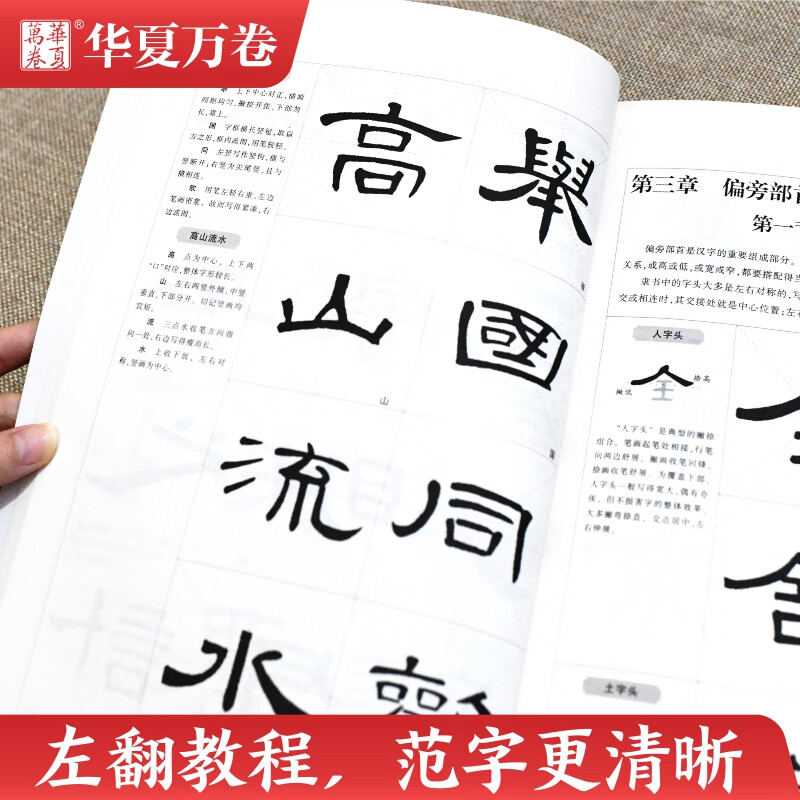 華夏
萬卷
®
华夏万卷
上下中心对正，横画
间距均匀，撇捺开张，下部勿
长，靠上。
国 字框横长竖短，取扁
方之形，框内疏朗，用笔较轻。
同 左竖写作竖钩，横与
竖断开；右竖为尖尾竖，且与
横相连。
欢 用笔左轻右重，左边
笔画密集，故而写得紧凑，右
边疏阔。
高山流水
高 点为中心，上下两
“口”对应，整体字形较长。
山 左右两竖外倾，中竖
垂直，下部分开。切记竖画均
宜短。
流 三点水收笔方向指
向一处，右边写得瘦而长。
水 上收下放，左右对
称，竖画为中心。
高 舉
山 國
流 同
水
山
国
第三章 偏旁部首
第一
偏旁部首是汉字的重要组成部分。
关系，或高或低，或宽或窄，都要搭配得当
隶书中的字头大多是左右对称的，写
交或相连时，其交接处就是中心位置；左右
人字头
全
捺高
撇低
“人字头”是典型的撇捺
组合。笔画起笔处相接，行笔
向两边舒展。撇画收笔回锋，
捺画收笔舒展。为覆盖下部，
人字头一般写得宽大，偶有夸
张，但不损害字的整体效果。
大多撇弯捺直，交点居中，左
右伸展。
土字头
左翻教程，范字更清晰